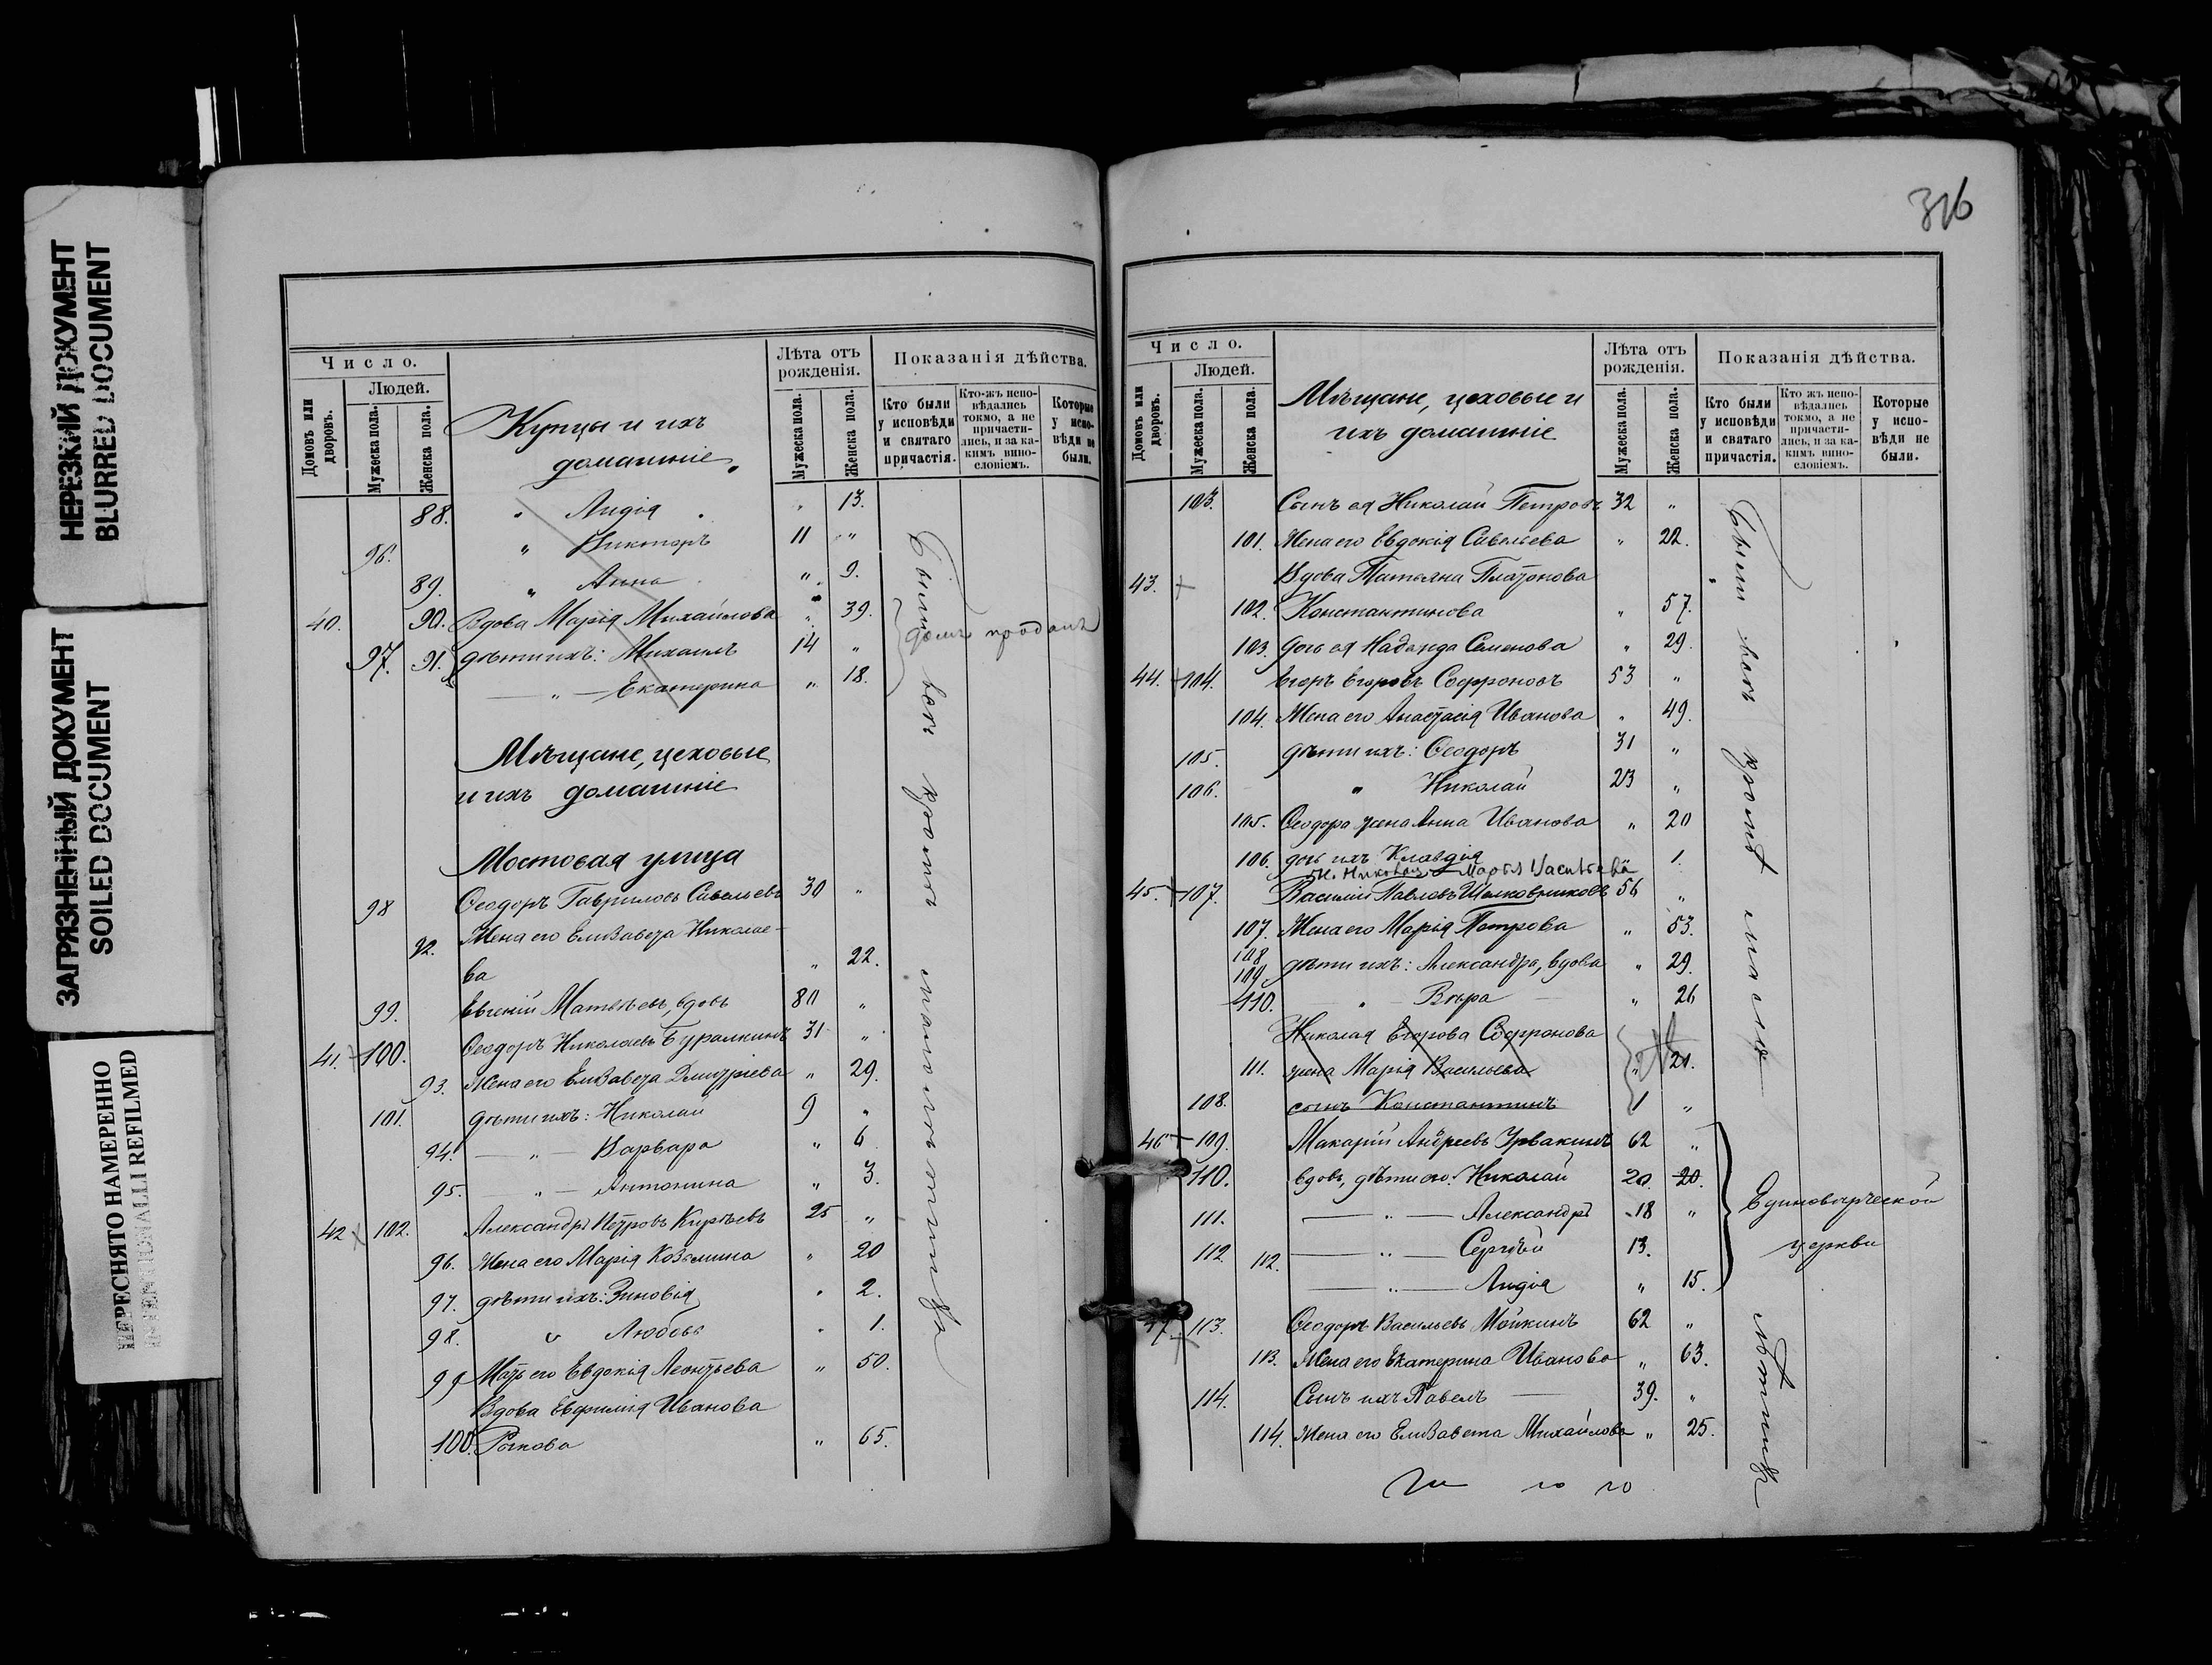 НЕРЕЗКИЙ ДОКУМЕНТ
BLURRED DOCUMENT
ЗАГРЯЗНЕННЫЙ ДОКУМЕНТ
SOILED DOCUMENT
ПЕРЕСНЯТО НАМЕРЕННО
INTENTIONALLI REFILMED
Число.
Людей.
Домовъ или дворовъ.
Мужеска пола.
Женска пола.
Купцы и ихъ
домашніе.
Лѣта отъ рожденія.
Мужеска пола.
Женска пола.
Показанія дѣйства.
Кто были у исповѣди и святаго причастія.
Кто-жъ исповѣдались токмо, а не причастились, и за какимъ винословіемъ.
Которые у исповѣди не были.
88. " Лидія " 13.
96. " Викторъ 11 "
89. " Анна " 9.
40. 90. Вдова Марія Михайлова " 39.
97. 91. дѣти ихъ: Михаилъ 14 "
— " — Екатерина " 18.
домъ проданъ
Мѣщане, цеховые
и ихъ домашніе
Мостовая улица
98 Ѳеодоръ Гавриловъ Савельевъ 30 "
92. Жена его Елизавета Николае-
ва " 22.
99. Евгеній Матвѣевъ, вдовъ 80 "
41. 100. Ѳеодоръ Николаевъ Буралкинъ 31 "
93. Жена его Елизавета Дмитріева " 29.
101. дѣти ихъ: Николай 9 "
94. — " — Варвара " 6
95. — " — Антонина " 3.
42 102. Александръ Петровъ Кирѣевъ 25 "
96. Жена его Марія Козьмина " 20
97. дѣти ихъ: Зиновія " 2.
98. " Любовь " 1.
99 Мать его Евдокія Леонтьева " 50.
Вдова Евфимія Иванова
100. Рыкова " 65.
Были всѣ кромѣ
316
Число.
Людей.
Домовъ или дворовъ.
Мужеска пола.
Женска пола.
Мѣщане, цеховые и
ихъ домашніе
Лѣта отъ рожденія.
Мужеска пола.
Женска пола.
Показанія дѣйства.
Кто были у исповѣди и святаго причастія.
Кто жъ исповѣдались токмо, а не причастились, и за какимъ винословіемъ.
Которые у исповѣди не были.
103. Сынъ ея Николай Петровъ 32 "
101. Жена его Евдокія Савельева " 22.
43. Вдова Татьяна Платонова
102. Константинова " 57.
103. дочь ея Надежда Семенова " 29.
44. 104. Егоръ Егоровъ Софроновъ 53 "
104. Жена его Анастасія Иванова " 49.
105. дѣти ихъ: Ѳеодоръ 31 "
106. " Николай 23 "
105. Ѳеодора жена Анна Иванова " 20
106. дочь ихъ Клавдія " 1.
Марья Васильева
45. 107. Василій Павловъ Шелковниковъ 56 "
107. Жена его Марія Петрова " 53.
108
109. дѣти ихъ: Александра, вдова " 29.
110. — " — Вѣра — " 26
Николая Егорова Софронова
111. жена Марія Васильева " 21.
108. сынъ Константинъ 1 "
46 109. Макарій Андреевъ Урвакинъ 62 "
110. вдовъ, дѣти его: Николай 20. 20.
111. — " — Александръ 18 "
112. 112. — " — Сергѣй 13.
— " — Лидія " 15.
Единовѣрческой
церкви
47 113. Ѳеодоръ Васильевъ Мойкинъ 62 "
113. Жена его Екатерина Иванова " 63.
114. Сынъ ихъ Павелъ — 39. "
114. Жена его Елизавета Михайлова " 25.
Были всѣ кромѣ